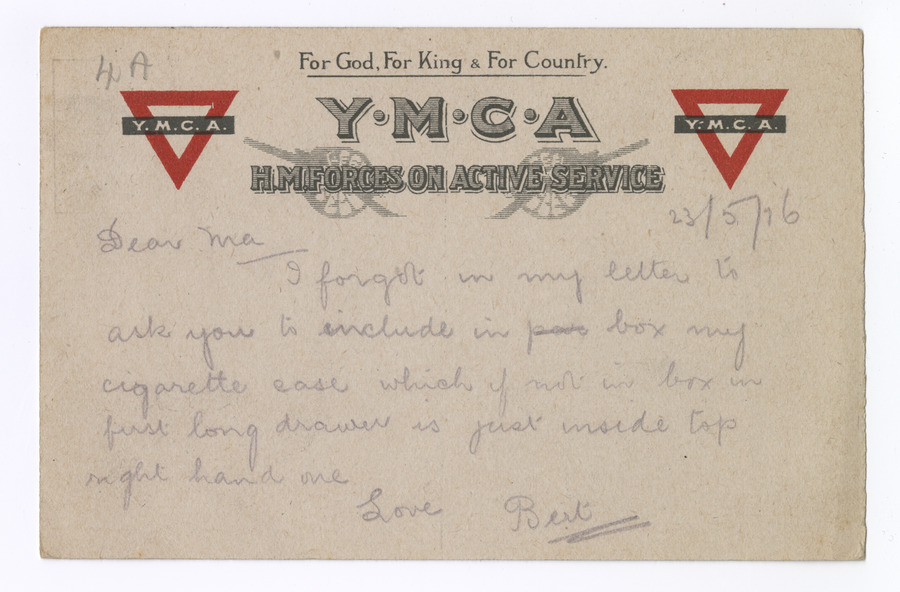 4A
For God, For King & For Country.
Y·M·C·A
Y.M.C.A.
Y.M.C.A.
H.M. FORCES ON ACTIVE SERVICE
23/5/16
Dear Ma
I forgot in my letter to
ask you to include in box my
cigarette case which if not in box in
first long drawer is just inside top
right hand one
Love Bert